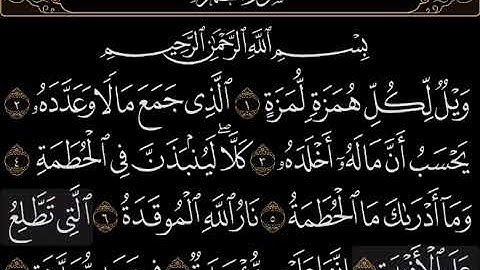 بِسْمِ ٱللَّهِ ٱلرَّحْمَٰنِ ٱلرَّحِيمِ
وَيْلٌ لِّكُلِّ هُمَزَةٍ لُّمَزَةٍ ١ ٱلَّذِى جَمَعَ مَالًا وَعَدَّدَهُۥ ٢
يَحْسَبُ أَنَّ مَالَهُۥٓ أَخْلَدَهُۥ ٣ كَلَّا ۖ لَيُنۢبَذَنَّ فِى ٱلْحُطَمَةِ ٤
وَمَآ أَدْرَىٰكَ مَا ٱلْحُطَمَةُ ٥ نَارُ ٱللَّهِ ٱلْمُوقَدَةُ ٦ ٱلَّتِى تَطَّلِعُ
عَلَى ٱلْأَفْـِٔدَةِ